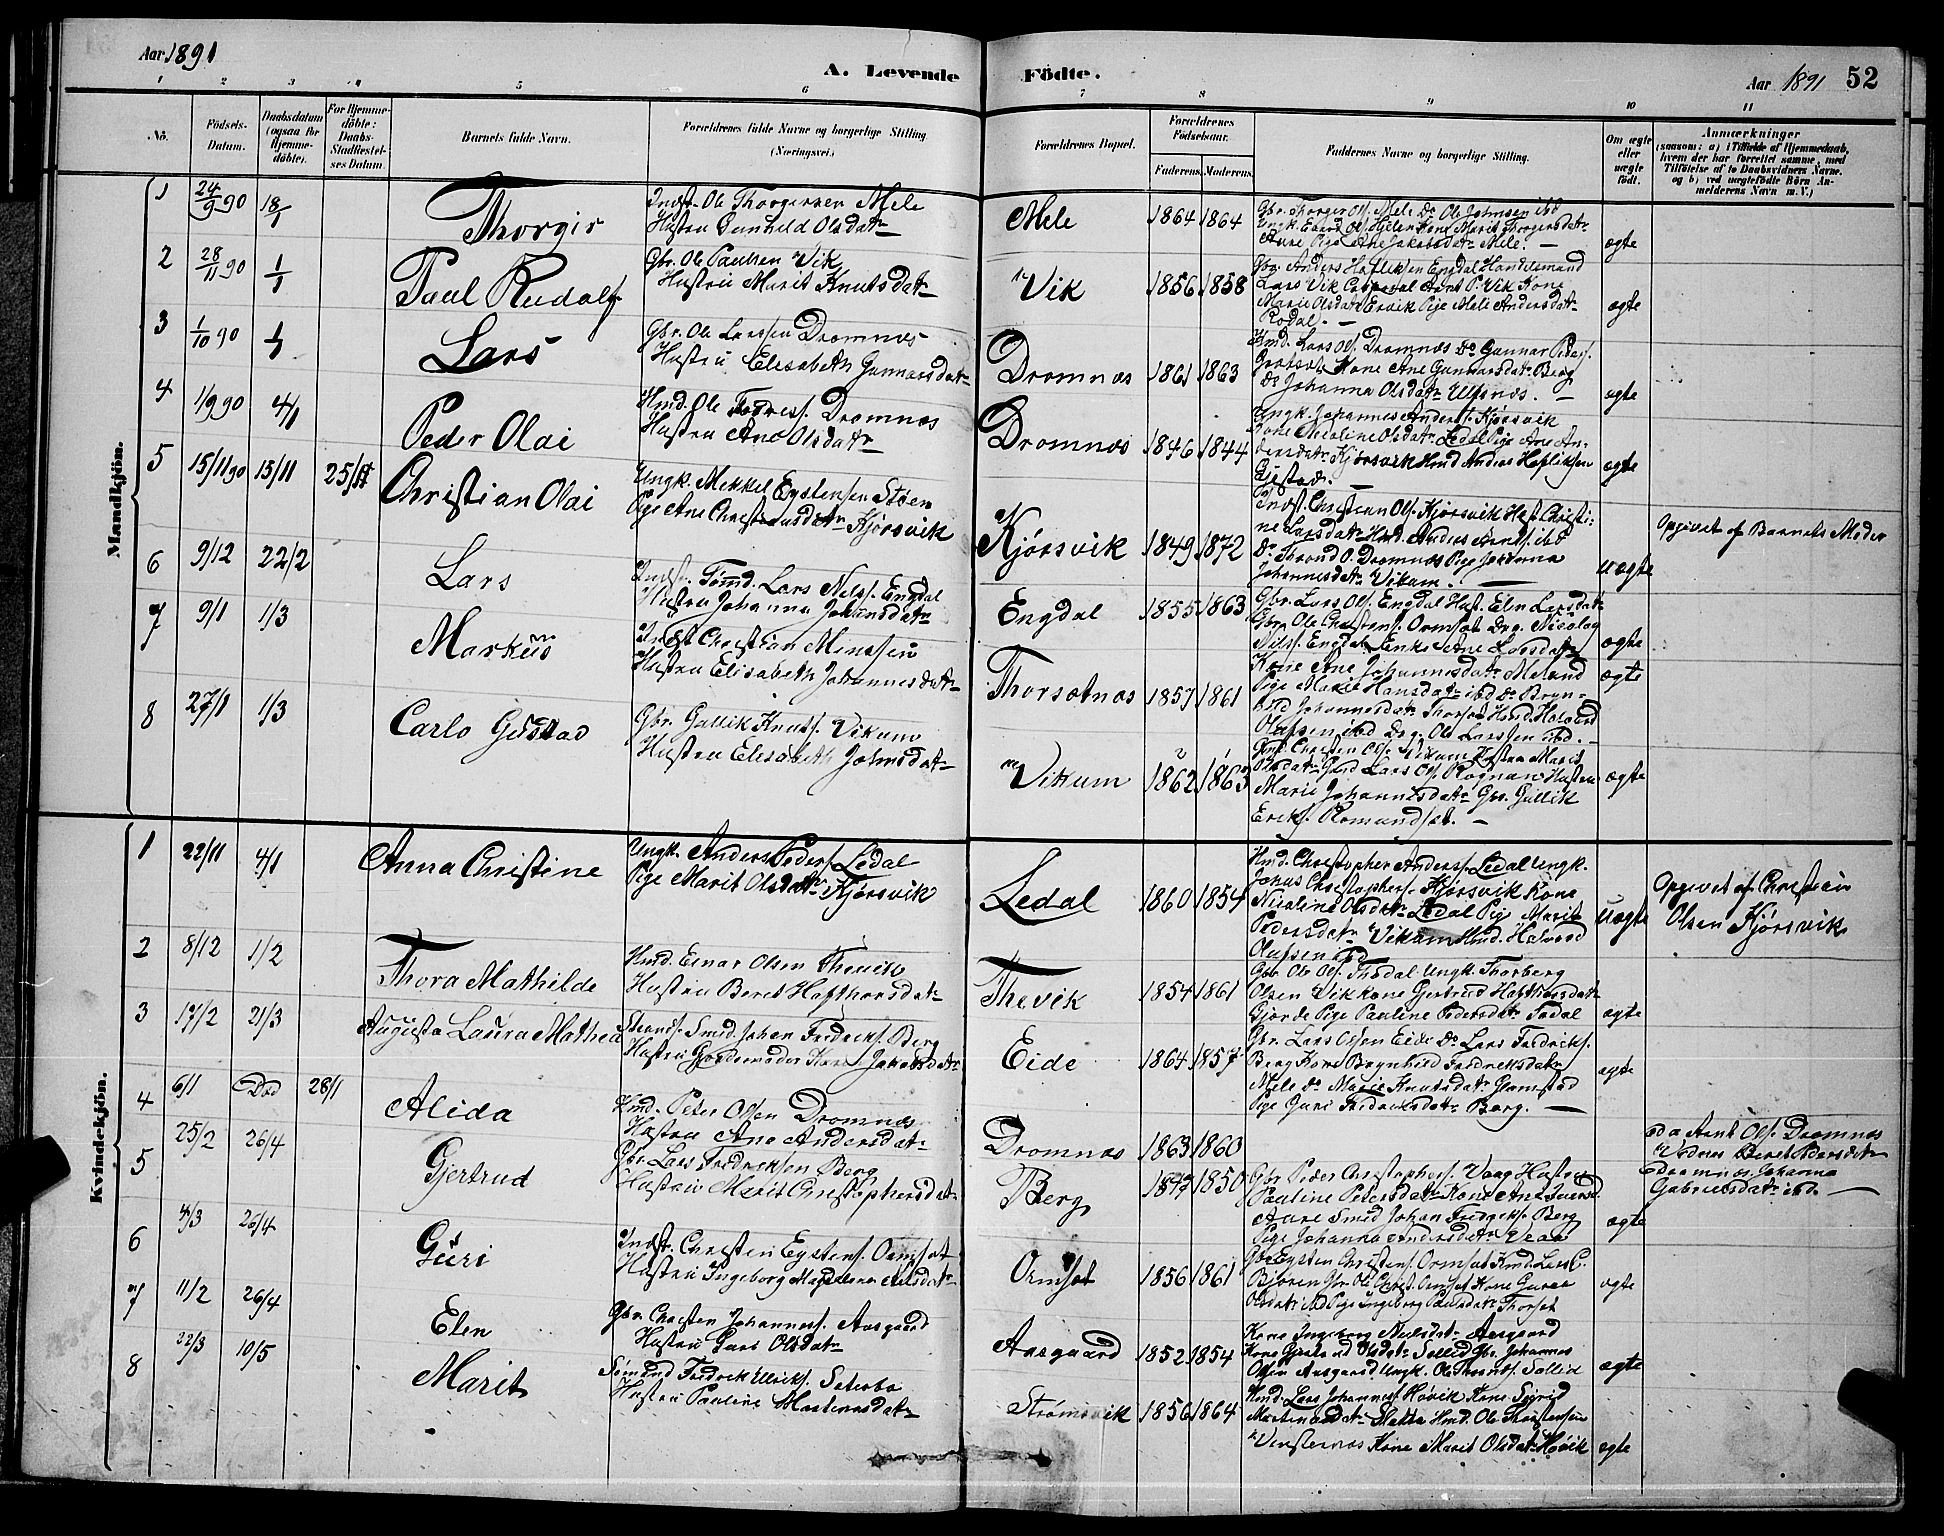 Aar 1891
A. Levende Födte.
Aar 1891 52
1 2 3 4 5 6 7 8 9 10 11
No.
Födsels-Datum.
Daabsdatum (ogsaa for Hjemme-döbte).
For Hjemme-döbte: Daabs-Stadfæstel-ses Datum.
Barnets fulde Navn.
Forældrenes fulde Navne og borgerlige Stilling (Næringsvei.)
Forældrenes Bopæl.
Forældrenes Födselsaar.
Faderens. Moderens.
Faddernes Navne og borgerlige Stilling.
Om ægte eller uægte födt.
Anmærkninger
(saasom: a) i Tilfælde af Hjemmedaab, hvem der har forrettet samme, med Tilföielse af to Daabsvidners Navne. og b) ved uægtefödte Börn Anmelderens Navn m. V.)
Mandkjön.
1 24/9 90 18/1 Thorgir
Indst. Ole Thorgersen Mele
Hustru Gunhild Olsdatr
Mele 1864 1864
Gbr. Thorger Ols. Mele Do Ole Johnsen ibd
Aure Pige Ane Jakobsdatr Mele. —
ægte
2 28/11 90 1/1 Paul Rudolf
Gbr. Ole Paulsen Vik
Hustru Marit Knutsdatr
Vik 1856 1858
Gbr. Anders Hafliksen Engdal Handelsmand
Marie Olsdatr Ervik Pige Meli Andersdatr
Rodal. —
ægte
3 1/10 90 1/1 Lars
Gbr. Ole Larssen Dromnes
Hustru Elisabeth Gunnarsdatr
Dromnæs 1861 1863
Hmd. Lars Ols. Dromnæs Do Gunnar Peders.
Kone Ane Gunnarsdatr Berg
Do Johanna Olsdatr Ulfsnæs. —
ægte
4 1/9 90 4/1 Peder Olai
Hmd. Ole Dromnæs
Hustru Ane Olsdatr
Dromnæs 1846 1844
Ungk. Johannes Anders. Kjørsvik
Kone Nicoline Olsdatr Ledal Pige Ane An-
dersdatr Kjørsvik Hmd Anders Hafliksen
Gjestad. —
ægte
5 15/11 90 15/11 25/11 Christian Olai
Ungk. Mekkel Eystensen Støen
Pige Ane Christiansdatr Kjørsvik
Kjørsvik 1849 1872
Indst. Christian Ols. Kjørsvik Hust. Christi-
ne Larsdatr Hmd. Anders ibd
Do Trond O. Dromnæs Pige Johanna
Johannesdatr Vikum. —
uægte
Opgivet af Barnets Moder
6 9/12 22/2 Lars
Indst. Tømd. Lars Nils. Engdal
Hustru Johanna Johansdatr
Engdal 1855 1863
Gbr. Lars Ols. Engdal Hust. Elen Larsdatr
Gbr. Ole Christens. Ormset Drg. Nicolay
Nils. Engdal Enke Ane Larsdatr
ægte
7 9/1 1/3 Markus
Indst Christian Monssen
Hustru Elisabeth Johannesdatr
Thorsætnæs 1857 1861
Kone Ane Johannesdatr Meland
Pige Marie Hansdatr ibd Do Bryn-
hild Johannesdatr Thorset Hmd. Halvord
Olafsen ibd Drg. Ole Larssen ibd. —
ægte
8 27/1 1/3 Carlo Gustad
Gbr. Gullik Knuts. Vikum
Hustru Elisabeth Johnsdatr
Vikum 1862 1863
Gbr. Christen Ols. Vikum Hustru Marit
Olsdatr Gbr. Lars Ols. Rognan Hustru
Marie Johannesdatr Gbr. Gullik
Eriks. Romundset. —
ægte
Kvindekjön.
1 22/11 4/1 Anna Christine
Ungk. Anders Peders. Ledal
Pige Marit Olsdatr Kjørsvik
Ledal 1860 1854
Hmd. Christopher Anders. Ledal Ungk.
Johas Christophers. Kjørsvik Kone
Nicoline Olsdatr Ledal Pige Marit
Pedersdatr Vikum Hmd. Halvord
Olufsen ibd
uægte
Opgivet af Christian
Olsen Kjørsvik
2 8/12 1/2 Thora Mathilde
Hmd. Einar Olsen Thevik
Hustru Beret Hafthorsdatr
Thevik 1854 1861
Gbr. Ole Ols. Thodal Ungk. Thorberg
Olsen Vik Kone Gjertrud Hafthorsdatr
Gjørde Pige Pauline Pedersdatr Todal
ægte
3 17/2 21/3 Augusta Laura Mathea
Strands. Smed Johan Fredriks. Berg
Hustru Gjordemoder Kari Jakobsdatr
Eide 1864 1857
Gbr. Lars Olsen Eide Do Lars Fredriks.
Berg Kone Brynhild Fredriksdatr
Mele Do Marie Knutsdatr Glemstad
Pige Guri Fredriksdatr Berg. —
ægte
4 6/1 Død 28/1 Alida
Hmd. Peter Olsen Dromnæs
Hustru Ane Andersdatr
Dromnæs 1863 1860
Arnt Ols. Dromnæs
Beret Pedersdatr
Dromnæs, Johanna
Gabrielsdatr ibd. —
5 25/2 26/4 Gjertrud
Gbr. Lars Fredriksen Berg
Hustru Marit Christophersdatr
Berg 1850
Gbr Peder Christophers. Vaag Hustru
Pauline Pedersdatr Kone Ane Iversd.
Aure Smed Johan Fredriks. Berg
Pige Johanna Andersdatr
ægte
6 4/3 26/4 Guri
Indst. Christen Eystens. Ormset
Hustru Ingeborg Magdalena Nilsdatr
Ormset 1856 1861
Gbr Eysten Christens. Ormset Hmd. Lars C.
Bjøren Gbr. Ole Christ. Ormset Kone Guroe
Olsdatr ibd Pige Ingeborg Paulsdatr Thorset
ægte
7 11/2 26/4 Elen
Gbr. Christen Johannes. Aasgaard
Hustru Guro Olsdatr
Aasgaard 1852 1854
Kone Ingeborg Nielsdatr Aasgaard
Kone Gjertrud Olsdatr Sollid Gbr. Johannes
Olsen Aasgaard Ungk. Ole Thrans. Sollid
ægte
8 22/3 10/5 Marit
Sømand Fredrik Ulriks. Seterbø
Hustru Pauline Mortensdatr
Strømsvik 1856 1864
Hmd. Lars Johannes. Høvik Kone Sigrid
Mortensdatr Sletta Hmd. Ole Thorstensen
Vensternæs Kone Marit Olsdatr Høvik
ægte